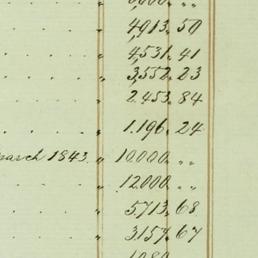 " 4,913.50
" 4,531.41
" 3,552.23
" 2.453.84
" 1.196.24
march 1843. " 10.000. "
" 12.000. "
" 5,713.68
" 3.157.67